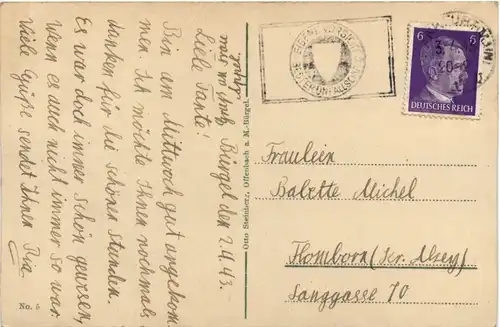 Bürgel den 2.4.43.
Liebe Tante!
Bin am Mittwoch gut angekom
men. Ich möchte Ihnen nochmals
danken für die schönen Stunden.
Es war doch immer schön gewesen,
wenn es auch nicht immer so war.
Viele Grüße sendet Ihnen Pia
No.
Otto Steinbertz, Offenbach a. M.-Bürgel.
6 6
DEUTSCHES REICH
Fräulein
Babette Michel
Flomborn (Kr. Alzey)
Langgasse 70